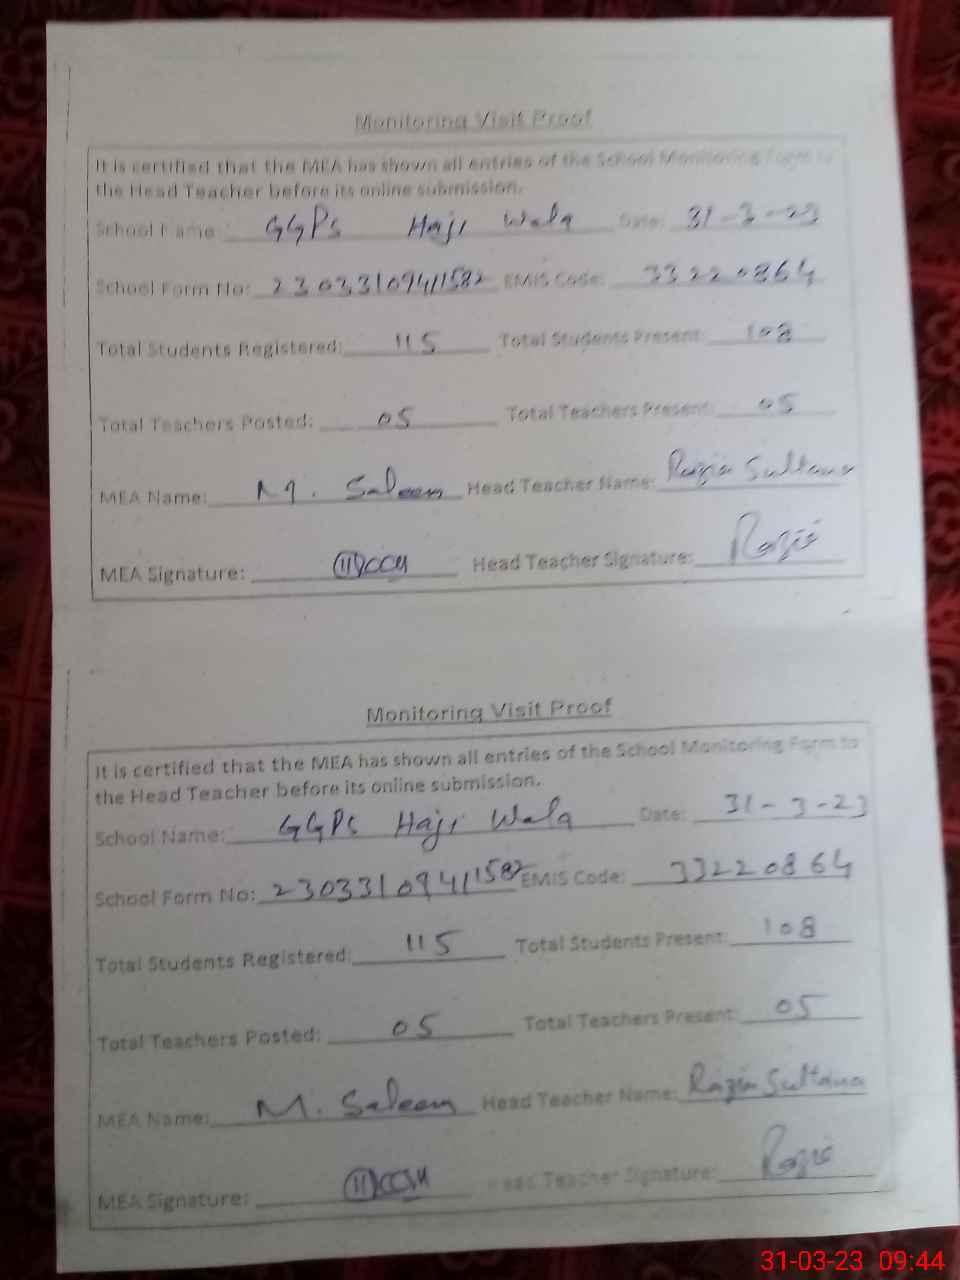 Monitoring Visit Proof
It is certified that the MEA has shown all entries of the School Monitoring Form to
the Head Teacher before its online submission.
School Name: GGPS Haji Wala Date: 31-3-23
School Form No: 23033109411582 EMIS Code: 33220864
Total Students Registered: 115 Total Students Present: 108
Total Teachers Posted: 05 Total Teachers Present: 05
MEA Name: M. Saleem Head Teacher Name: Razia Sultana
MEA Signature: Head Teacher Signature: Razia
Monitoring Visit Proof
It is certified that the MEA has shown all entries of the School Monitoring Form to
the Head Teacher before its online submission.
School Name: GGPS Haji Wala Date: 31-3-23
School Form No: 23033109411582 EMIS Code: 33220864
Total Students Registered: 115 Total Students Present: 108
Total Teachers Posted: 05 Total Teachers Present: 05
MEA Name: M. Saleem Head Teacher Name: Razia Sultana
MEA Signature: Head Teacher Signature: Razia
31-03-23 09:44